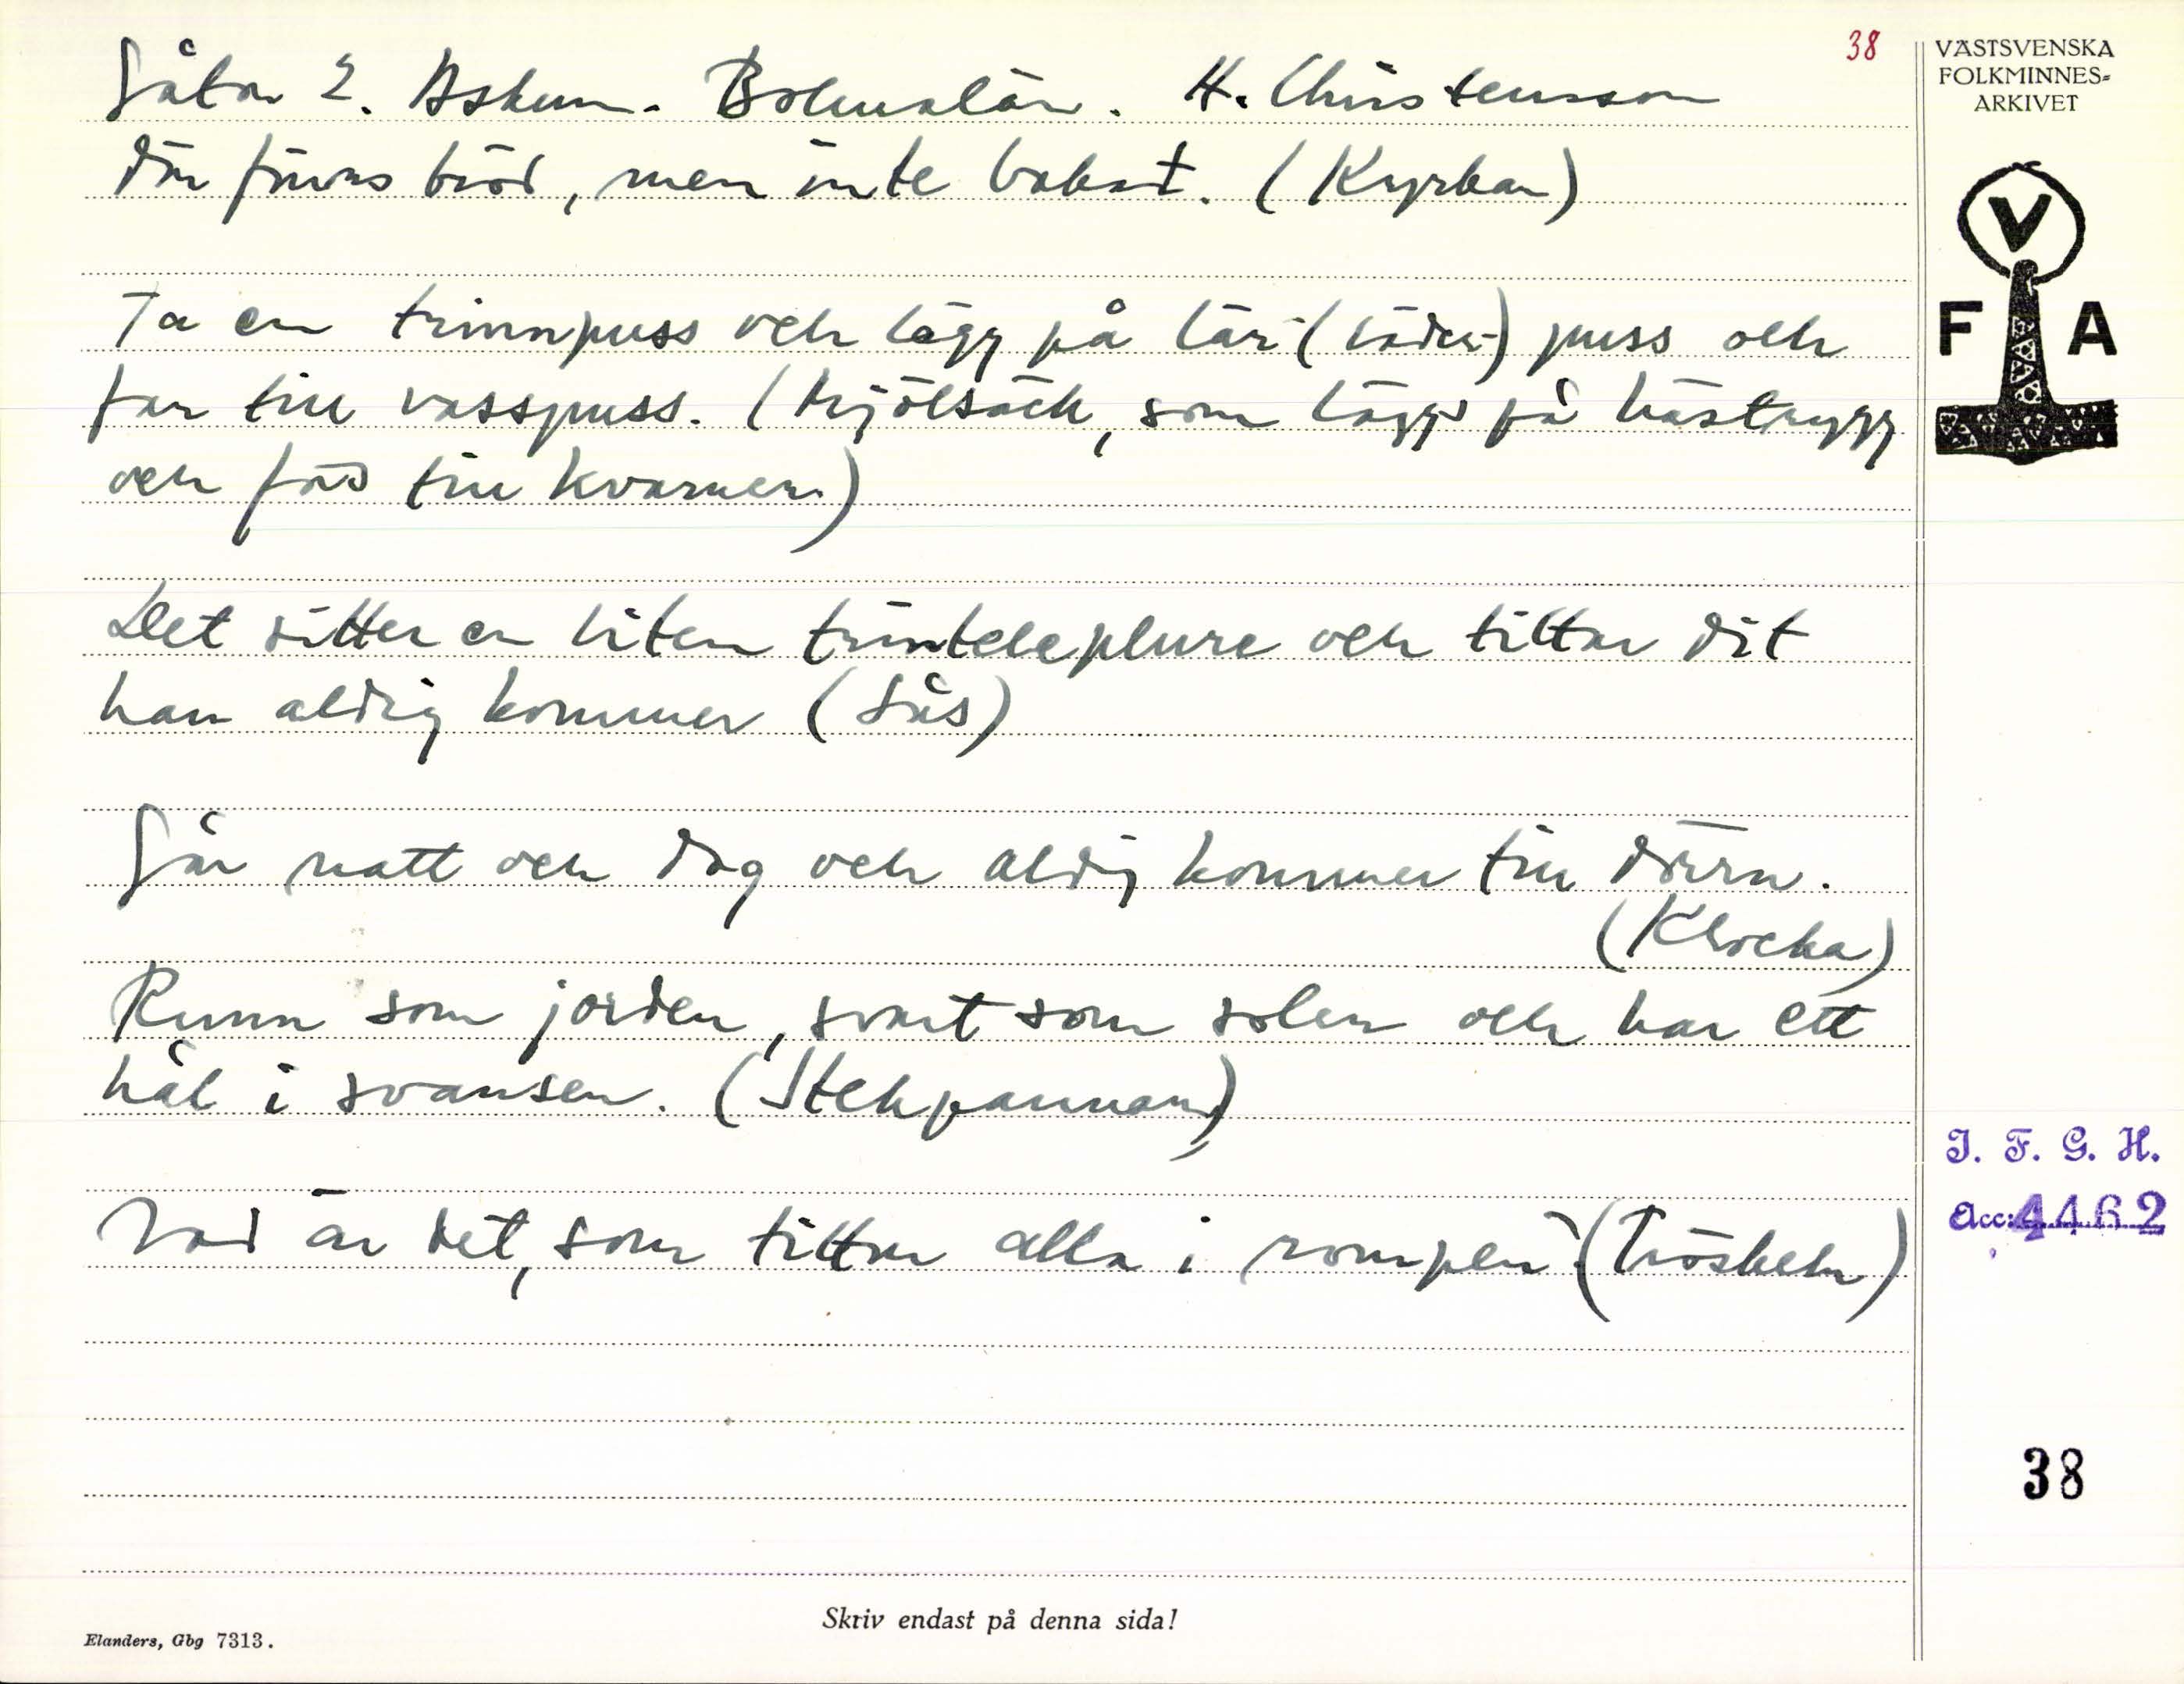 38
Gåtor 2. Askum. Bohuslän. H. Christensson
Där finns bröd, men inte bakat. (Kyrkan)
Ta en trinnpuss och lägg på lär- (läder-) puss och
far till vasspuss. (Mjölsäck, som läggs på hästrygg
och förs till kvarnen)
Det sitter en liten trinteleplure och tittar dit
han aldrig kommer (Lås)
Går natt och dag och aldrig kommer till dörrn.
(Klocka)
Runn som jorden, svart som solen och har ett
hål i svansen. (Stekpannan)
Vad är det, som tittar alla i rumpen? (Tröskeln)
VÄSTSVENSKA
FOLKMINNES=
ARKIVET
V
F A
I. F. G. H.
Acc: 4462
38
Skriv endast på denna sida!
Elanders, Gbg 7313.